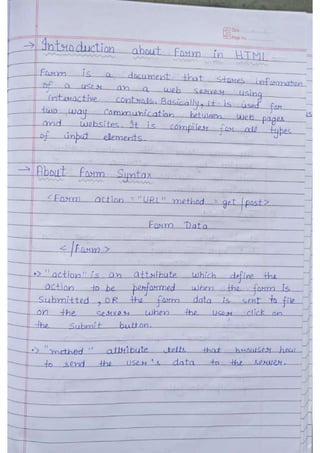 → Introduction about Form in HTML
Form is a document that stores information
of a user on a web server using
interactive controls. Basically, it is used for
two way communication between web pages
and websites. It is compiler for all types
of input elements.
→ About Form Syntax
<Form action = "URL" method = get | post>
Form Data
</Form>
•> "action" is an attribute which define the
action to be performed when the form is
Submitted, OR the form data is sent to file
on the server when the user click on
the Submit button.
•> "method" attribute tells that browser how
to send the user's data to the server.